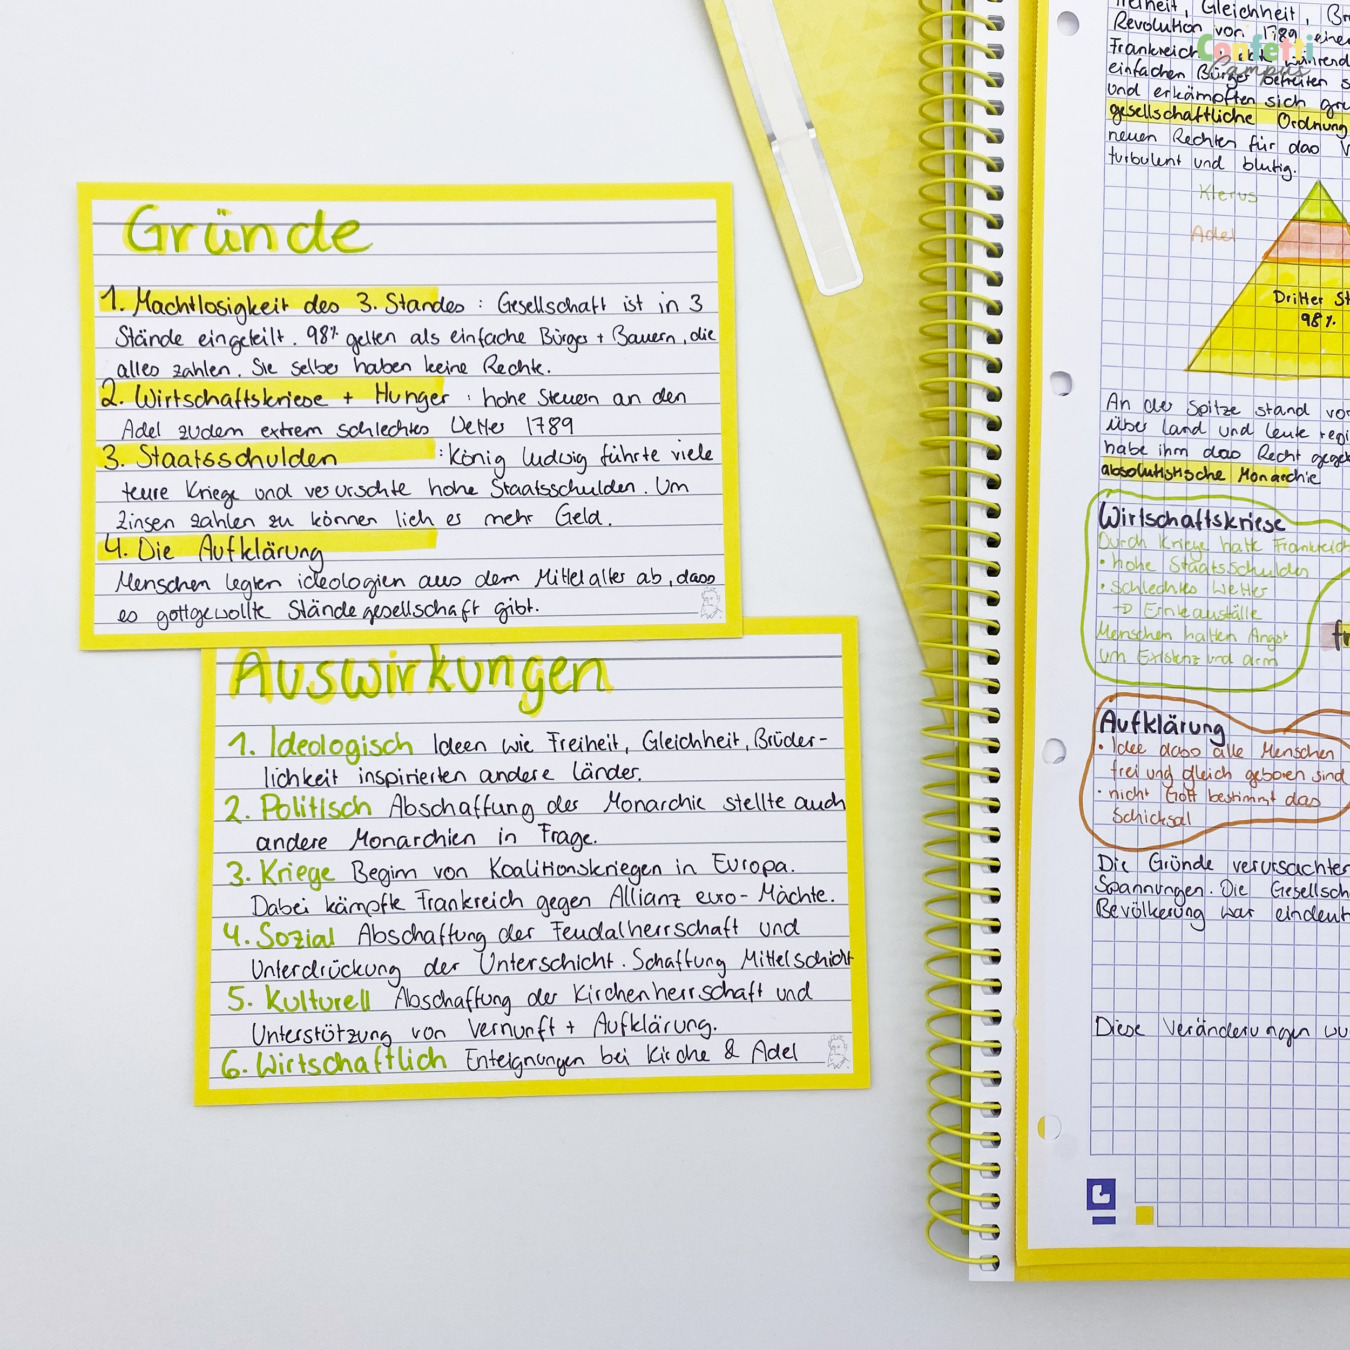 Gründe
1. Machtlosigkeit des 3. Standes : Gesellschaft ist in 3
Stände eingeteilt. 98% gelten als einfache Bürger + Bauern, die
alles zahlen. Sie selber haben keine Rechte.
2. Wirtschaftskriese + Hunger : hohe Steuern an den
Adel zudem extrem schlechtes Wetter 1789
3. Staatsschulden : König Ludwig führte viele
teure Kriege und verurschte hohe Staatsschulden. Um
Zinsen zahlen zu können lieh es mehr Geld.
4. Die Aufklärung
Menschen legten ideologien aus dem Mittelalter ab, dass
es gottgewollte Ständegesellschaft gibt.
Auswirkungen
1. Ideologisch Ideen wie Freiheit, Gleichheit, Brüder-
lichkeit inspirierten andere Länder.
2. Politisch Abschaffung der Monarchie stellte auch
andere Monarchien in Frage.
3. Kriege Beginn von Koalitionskriegen in Europa.
Dabei kämpfte Frankreich gegen Allianz euro- Mächte.
4. Sozial Abschaffung der Feudalherrschaft und
Unterdrückung der Unterschicht. Schaffung Mittelschicht
5. Kulturell Abschaffung der Kirchenherrschaft und
Unterstützung von Vernunft + Aufklärung.
6. Wirtschaftlich Enteignungen bei Kirche & Adel
Confetti
Campus
Freiheit, Gleichheit,
Revolution von 1789
Frankreich
einfachen Bürger
und erkämpften sich
gesellschaftliche Ordnung
neuen Rechten für das
turbulent und blutig.
Klerus
Adel
Dritter
98%
An der Spitze stand
über Land und Leute
habe ihm das Recht
absolutistische Monarchie
Wirtschaftskriese
Durch Kriege hatte Frankreich
• hohe Staatsschulden
• schlechtes Wetter
→ Ernteausfälle
Menschen hatten Angst
um Existenz und arm
Aufklärung
• Idee dass alle Menschen
frei und gleich geboren sind
• nicht Gott bestimmt das
Schicksal
Die Gründe verursachten
Spannungen. Die
Bevölkerung war
Diese Veränderungen